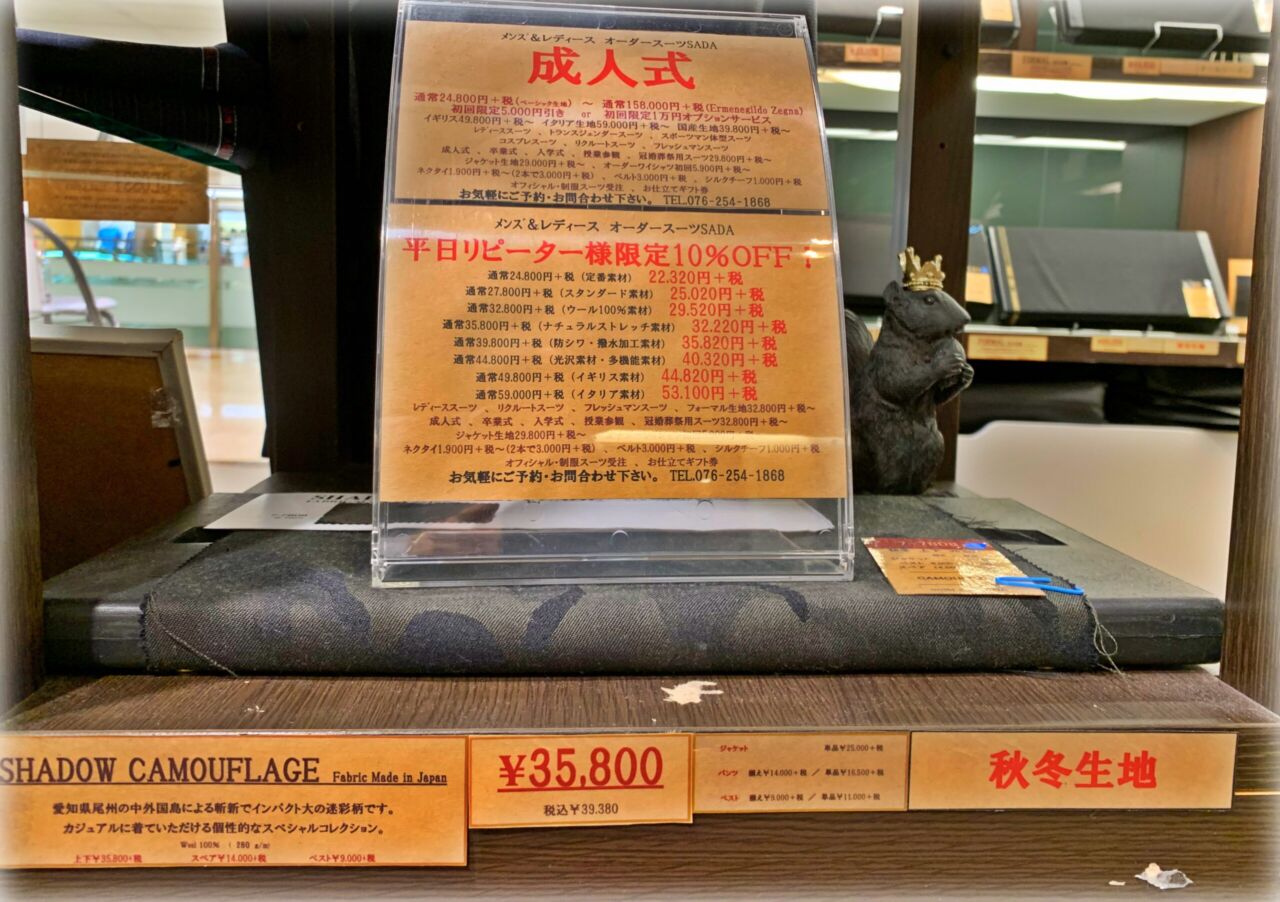 メンズ&レディース オーダースーツSADA
成人式
通常24.800円+税(ベーシック生地) ～ 通常158.000円+税(Ermenegildo Zegna)
初回限定5.000円引き or 初回限定1万円オプションサービス
イギリス49.800円+税～ イタリア生地59.000円+税～ 国産生地39.800円+税～
レディーススーツ 、トランスジェンダースーツ 、スポーツマン体型スーツ
コスプレスーツ 、リクルートスーツ 、フレッシュマンスーツ
成人式 、卒業式 、入学式 、授業参観 、冠婚葬祭用スーツ29.800円+税～
ジャケット生地29.000円+税～ 、オーダーワイシャツ初回5.900円+税～
ネクタイ1.900円+税～(2本で3.000円+税) 、ベルト3.000円+税 、シルクチーフ1.000円+税
オフィシャル・制服スーツ受注 、お仕立てギフト券
お気軽にご予約・お問合わせ下さい。 TEL.076-254-1868
メンズ&レディース オーダースーツSADA
平日リピーター様限定10%OFF!
通常24.800円+税(定番素材) 22.320円+税
通常27.800円+税(スタンダード素材) 25.020円+税
通常32.800円+税(ウール100%素材) 29.520円+税
通常35.800円+税(ナチュラルストレッチ素材) 32.220円+税
通常39.800円+税(防シワ・撥水加工素材) 35.820円+税
通常44.800円+税(光沢素材・多機能素材) 40.320円+税
通常49.800円+税(イギリス素材) 44.820円+税
通常59.000円+税(イタリア素材) 53.100円+税
レディーススーツ 、リクルートスーツ 、フレッシュマンスーツ 、フォーマル生地32.800円+税～
成人式 、卒業式 、入学式 、授業参観 、冠婚葬祭用スーツ32.800円+税～
ジャケット生地29.800円+税～
ネクタイ1.900円+税～(2本で3.000円+税) 、ベルト3.000円+税 、シルクチーフ1.000円+税
オフィシャル・制服スーツ受注 、お仕立てギフト券
お気軽にご予約・お問合わせ下さい。 TEL.076-254-1868
SHADOW CAMOUFLAGE Fabric Made in Japan
愛知県尾州の中外国島による斬新でインパクト大の迷彩柄です。
カジュアルに着ていただける個性的なスペシャルコレクション。
Wool 100% ( 280 g/m)
上下¥35,800+税 スペア¥14,000+税 ベスト¥9,000+税
¥35,800
税込¥39.380
ジャケット 単品¥25,000+税
パンツ 揃え¥14,000+税 / 単品¥16,500+税
ベスト 揃え¥9,000+税 / 単品¥11,000+税
秋冬生地